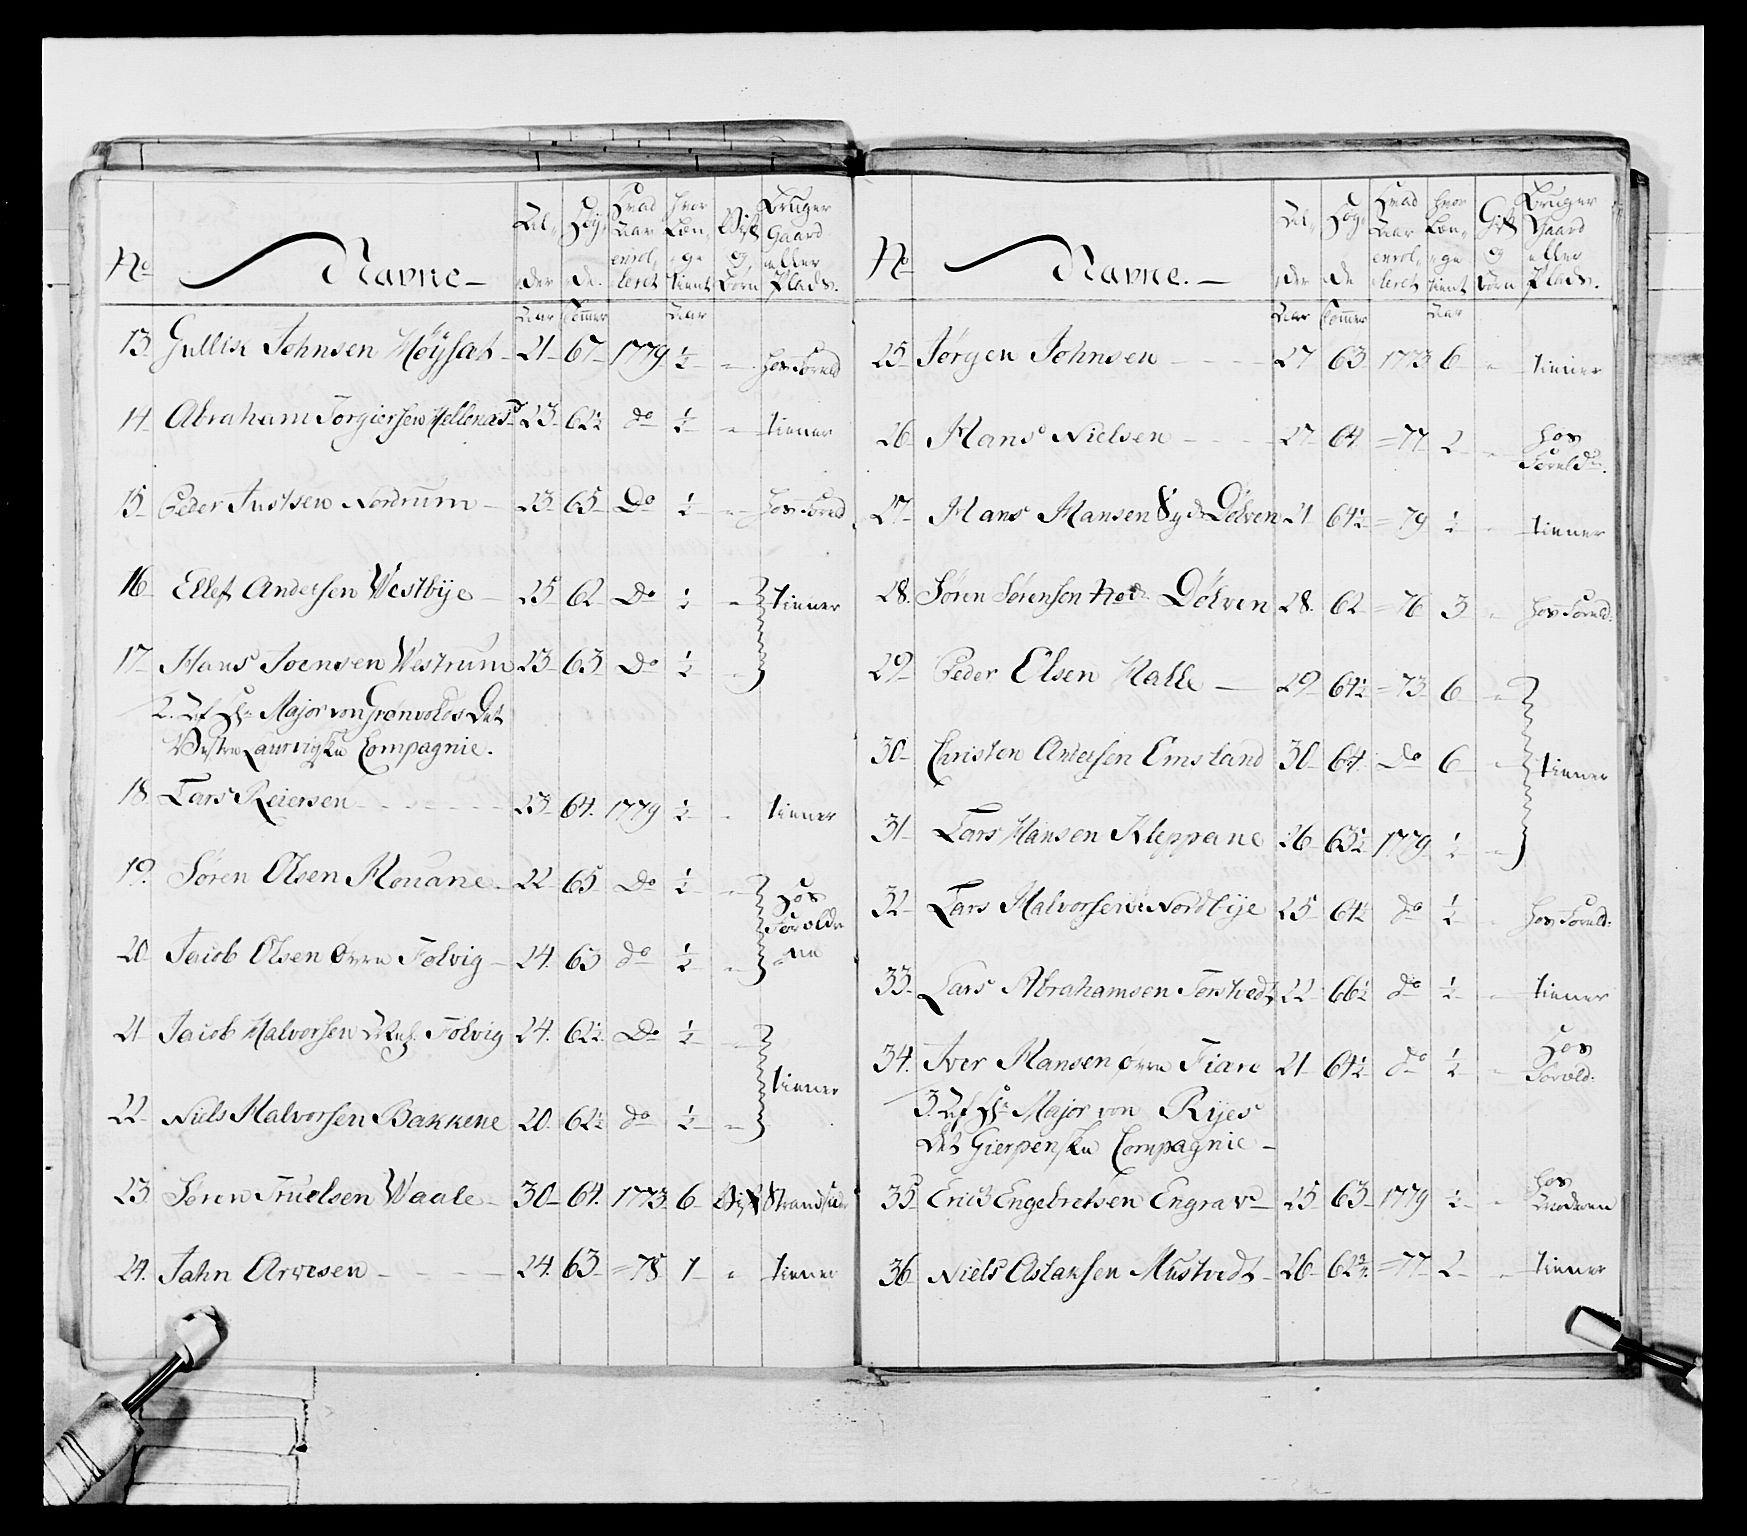 No Navne Al-der Aar Høy-de Tommer Hvad Aar enrol-leret Hvor Læn-ge tient Aar Gift og Børn Bruger Gaard eller Plads.
13. Gullik Johnsen Høysæt 21 67 1779 ½ " hos Foreld
14 Abraham Torgiersen 23 62½ do ½ " tiener
15 Peder Justsen Nordrum 23 65 Do ½ " hos Foreld
16 Ellef Andersen Westbye 25 62 Do ½ " tiener
17 Hans Joensen Westrum 23 63 Do ½ "
2. Af Hr Major von Grønvolds Det
Vestre Laurvigske Compagnie.
18 Lars Reiersen 23 64. 1779 ½ " tiener
19. Søren Olsen Rouane 22 65 Do ½ " hos
Forældre
ne
20 Jacob Olsen øvre Folvig 24. 63 do ½ "
21 Jacob Halvorsen Folvig 24. 62½ Do ½ "
tiener
22 Niels Halvorsen Bakkene 20. 62½ do ½ "
23 Søren Truelsen Waale 30 64. 1773 6 Gift Strandsider
24. Jahn Arvesen 24. 63 =78 1 " tiener
No Navne. Al-der Aar Høy-de Tommer Hvad Aar enrol-leret Hvor Læn-ge tient Aar Gift og Børn Bruger Gaard eller Plads.
25 Jørgen Johnsen 27 63 1773 6 " tiener
26 Hans Nielsen 27 64 =77 2 " hos
Foreld:
27 Hans Hansen Syd Dølven 21 64½ =79 ½ " tiener
28. Søren Sørensen Dølven 28. 62 =76 3 " hos Foreld:
29 Peder Elsen Halle 29 64½ =73 6 "
30 Christen Andersen Omsland 30 64 Do 6 " tiener
31 Lars Hansen Kleppane 26 63½ 1779 ½ "
32 Lars Halvorsen Nordbye 25 64½ do ½ " hos Foreld:
33 Lars Abrahamsen Torstvedt 22 66½ do ½ " tiener
34. Iver Hansen øvre Fiare 21 64½ do ½ " hos
Foreld:
3. Af Hr Major von Ryes
Det Gierpenske Compagnie
35 Erick Engebretsen Engrav 25 63 1779 ½ " hos
Broderen
36 Niels Aslaksen Mustvedt 26 62¾ =77 2 " tiener